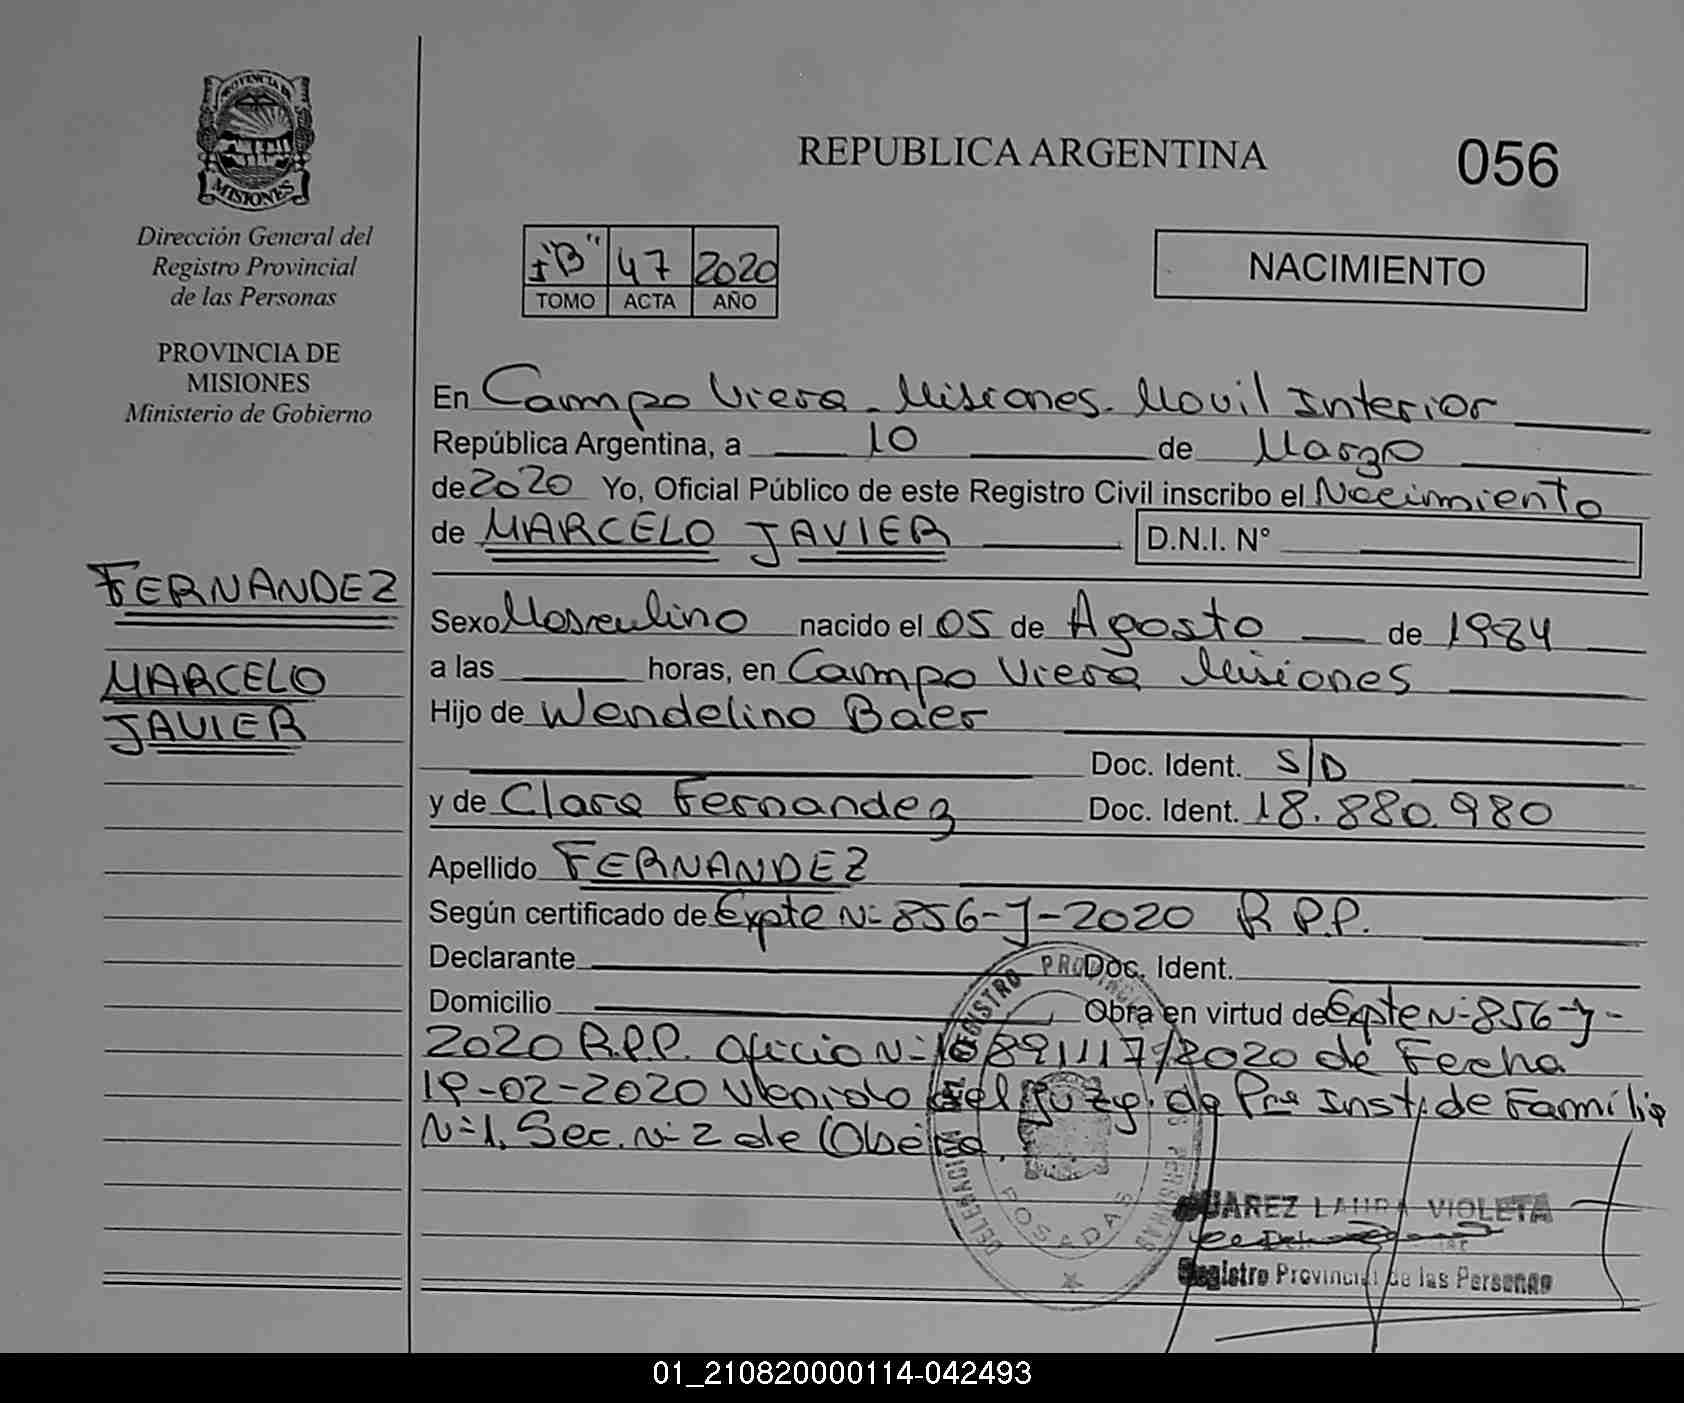 PROVINCIA DE
MISIONES
Dirección General del
Registro Provincial
de las Personas
PROVINCIA DE
MISIONES
Ministerio de Gobierno
FERNANDEZ
MARCELO
JAVIER
REPUBLICA ARGENTINA
056
"B" 47 2020
TOMO ACTA AÑO
NACIMIENTO
En Campo Viera - Misiones - Movil Interior
República Argentina, a 10 de Marzo
de 2020 Yo, Oficial Público de este Registro Civil inscribo el Nacimiento
de MARCELO JAVIER D.N.I. N°
Sexo Masculino nacido el 05 de Agosto de 1984
a las horas, en Campo Viera Misiones
Hijo de Wendelino Baer
Doc. Ident. S/D
y de Clara Fernandez Doc. Ident. 18.880.980
Apellido FERNANDEZ
Según certificado de Expte N- 856-J-2020 R.P.P.
Declarante Doc. Ident.
Domicilio Obra en virtud de Expte N- 856-J-
2020 R.P.P. Oficio N- /2020 de Fecha
19-02-2020 Venido del Juzg. de Pra Inst. de Familia
N-1, Sec. N- 2 de Oberá.
DELEGACION DEL REGISTRO PROVINCIAL DE LAS PERSONAS
POSADAS
SUAREZ LAURA VIOLETA
Registro Provincial de las Personas
01_210820000114-042493